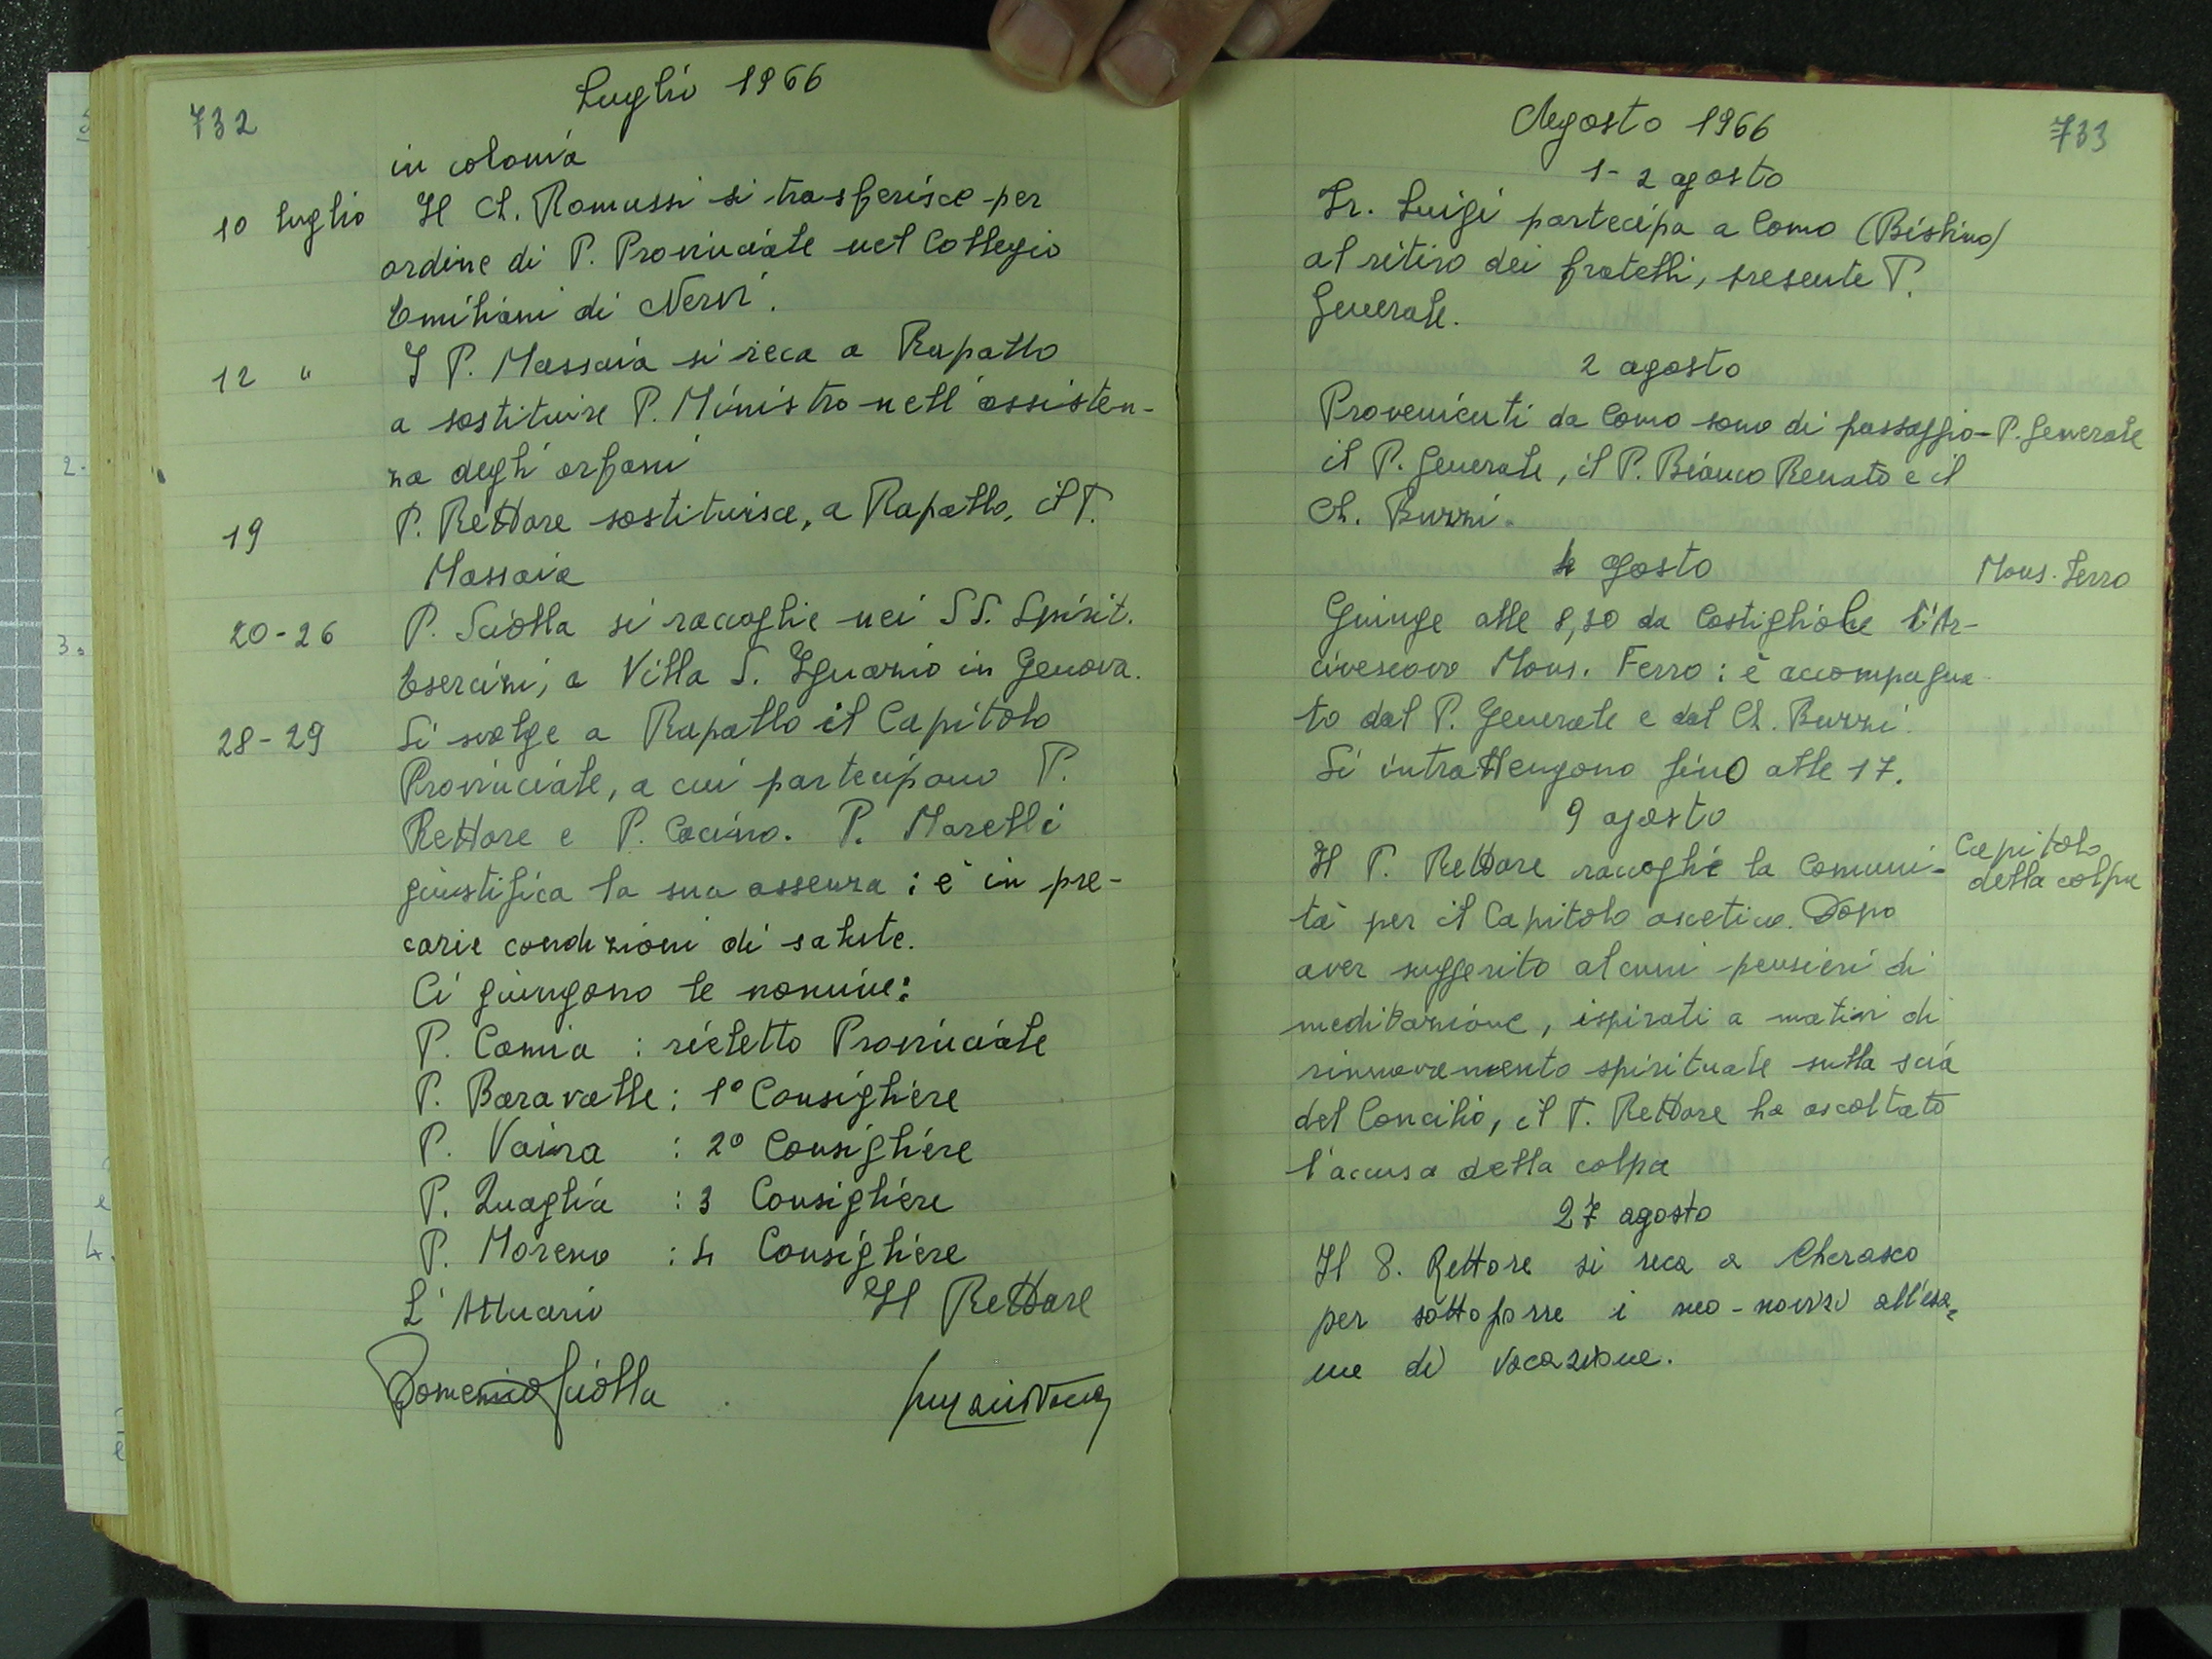 732
Luglio 1966
in colonia
10 luglio Il Ch. Romussi si trasferisce per
ordine di P. Provinciale nel Collegio
Emiliani di Nervi.
12 " I P. Massaia si reca a Rapallo
a sostituire P. Ministro nell'assisten-
za degli orfani
19 P. Rettore sostituisce, a Rapallo, il P.
Massaia
20-26 P. Sciolla si raccoglie nei SS. Spirit.
Esercizi, a Villa S. Ignazio in Genova.
28-29 Si svolge a Rapallo il Capitolo
Provinciale, a cui partecipano P.
Rettore e P. Cocino. P. Marelli
giustifica la sua assenza : è in pre-
carie condizioni di salute.
Ci giungono le nomine:
P. Camia : rieletto Provinciale
P. Baravalle : 1° Consigliere
P. Vaira : 2° Consigliere
P. Quaglia : 3 Consigliere
P. Moreno : 4 Consigliere
L'Attuario Il Rettore
Domenico Sciolla
733
Agosto 1966
1-2 agosto
Fr. Luigi partecipa a Como (Bistino)
al ritiro dei fratelli, presente P.
Generale.
2 agosto
Provenienti da Como sono di passaggio - P. Generale
il P. Generale, il P. Bianco Renato e il
Ch. Buzzi.
4 agosto
Mons. Ferro
Giunge alle 8,30 da Costigliole l'Ar-
civescovo Mons. Ferro : è accompagna-
to dal P. Generale e dal Ch. Buzzi.
Si intrattengono fino alle 17.
9 agosto
Capitolo
della colpa
Il P. Rettore raccoglie la Comuni-
tà per il Capitolo ascetico. Dopo
aver suggerito alcuni pensieri di
meditazione, ispirati a motivi di
rinnovamento spirituale sulla scia
del Concilio, il P. Rettore ha ascoltato
l'accusa della colpa
27 agosto
Il P. Rettore si reca a Cherasco
per sottoporre i neo-novizi all'esa=
me di vocazione.